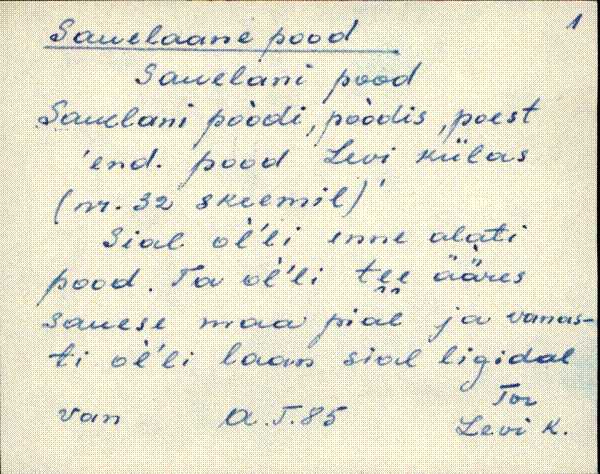 1
Sauelaane pood
Sauelani pood
Sauelani pòòdi, pòòdis, poest
'end. pood Levi külas
(nr. 32 skeemil)'
Sial òĺ'li enne alati
pood. Ta òĺ'li tee ääres
sauese maa pial ja vanas-
ti òĺ'li laan sial ligidal
Van A.T.85 Tor
Levi k.